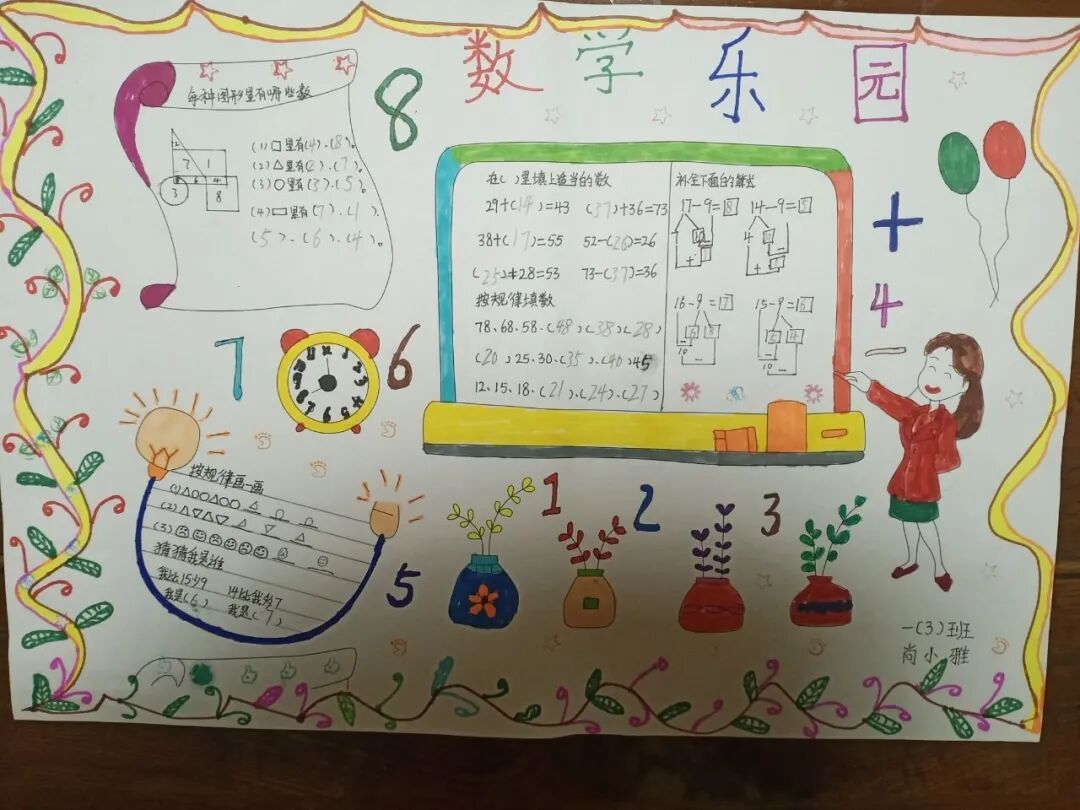 数学乐园
8
每种图形里有哪些数
2
7 1
3 4
8
(1)□里有(4)、(8)。
(2)△里有(2)、(7)。
(3)○里有(3)、(5)。
(4)▭里有(7)、(1)、
(5)、(6)、(4)。
在( )里填上适当的数
29+(14)=43 (37)+36=73
38+(17)=55 52-(26)=26
(25)+28=53 73-(37)=36
按规律填数
78、68、58、(48)、(38)、(28)
(20)、25、30、(35)、(40)、45
12、15、18、(21)、(24)、(27)
补全下面的算式
17-9=8 14-9=5
16-9= 15-9=
10 10
+
4
-
7
6
按规律画一画
(1)△○○△○○ △ ○ ○
(2)△▽△▽ △ ▽ △
(3)
猜猜我是谁
我比15少9 14比我多7
我是(6) 我是(7)
5
1
2
3
一(3)班
尚小雅